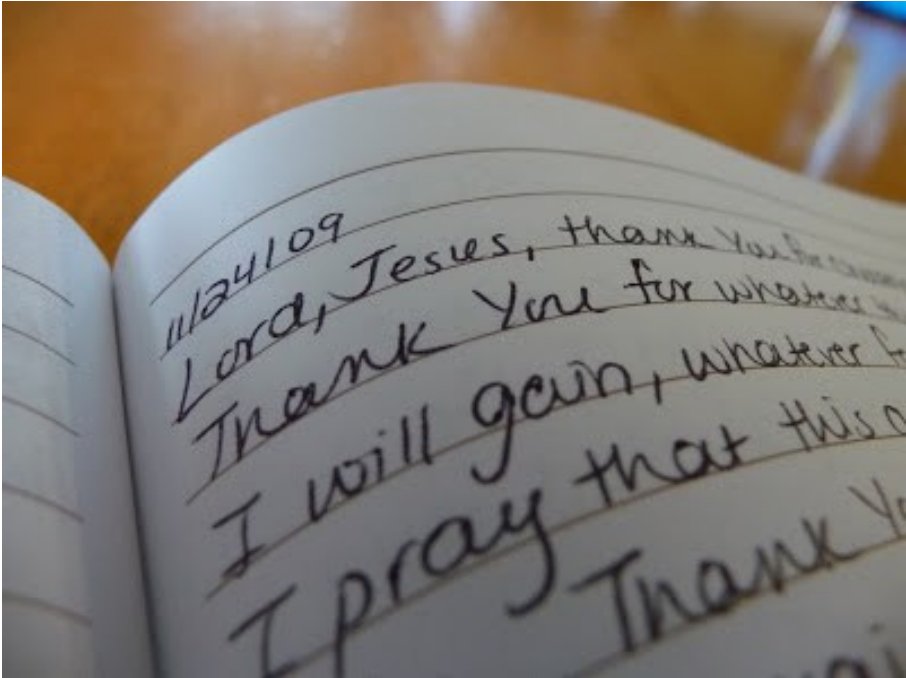 11/24/09
Lord, Jesus, thank You for
Thank You for whatever
I will gain, whatever
I pray that this
Thank